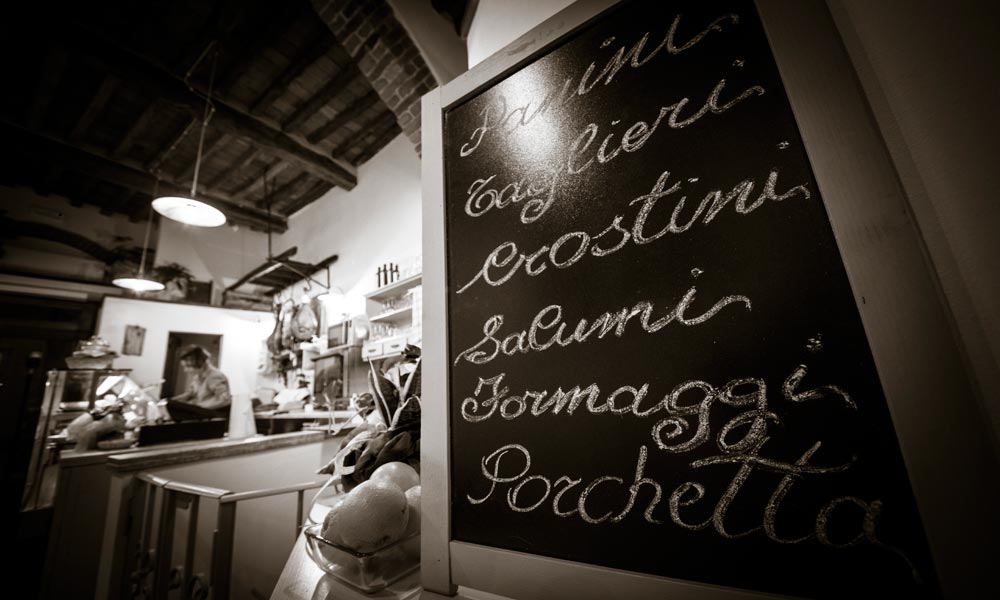 Panini
Taglieri
Crostini
Salumi
Formaggi
Porchetta